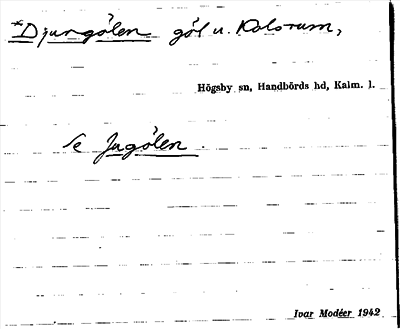 *Djurgölen göl u. Kolsrum,
Högsby sn, Handbörds hd, Kalm. l.
Se Jugölen.
Ivar Modéer 1942